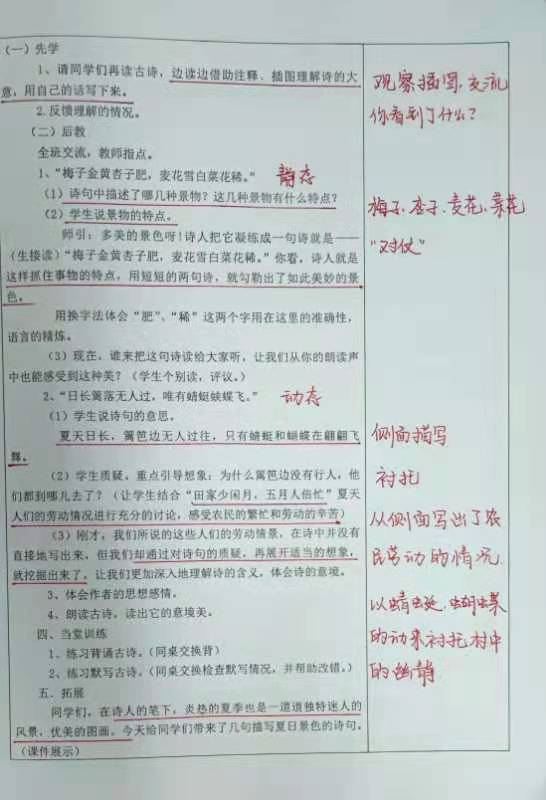 （一）先学
1、请同学们再读古诗，边读边借助注释、插图理解诗的大
意，用自己的话写下来。
2.反馈理解的情况。
（二）后教
全班交流，教师指点。
1、“梅子金黄杏子肥，麦花雪白菜花稀。” 静态
（1）诗句中描述了哪几种景物？这几种景物有什么特点？
（2）学生说景物的特点。
师引：多美的景色呀！诗人把它凝练成一句诗就是——
（生接读）“梅子金黄杏子肥，麦花雪白菜花稀。”你看，诗人就是
这样抓住事物的特点，用短短的两句诗，就勾勒出了如此美妙的景
色。
用换字法体会“肥”、“稀”这两个字用在这里的准确性，
语言的精炼。
（3）现在，谁来把这句诗读给大家听，让我们从你的朗读声
中也能感受到这种美？（学生个别读，评议。）
2、“日长篱落无人过，唯有蜻蜓蛱蝶飞。” 动态
（1）学生说诗句的意思。
夏天日长，篱笆边无人过往，只有蜻蜓和蝴蝶在翩翩飞
舞。
（2）学生质疑，重点引导想象：为什么篱笆边没有行人，他
们都到哪儿去了？（让学生结合“田家少闲月，五月人倍忙”夏天
人们的劳动情况进行充分的讨论，感受农民的繁忙和劳动的辛苦）
（3）刚才，我们所说的这些人们的劳动情景，在诗中并没有
直接地写出来，但我们却通过对诗句的质疑，再展开适当的想象，
就挖掘出来了，让我们更加深入地理解诗的含义，体会诗的意境。
3、体会作者的思想感情。
4、朗读古诗，读出它的意境美。
四、当堂训练
1、练习背诵古诗。（同桌交换背）
2、练习默写古诗。（同桌交换检查默写情况，并帮助改错。）
五、拓展
同学们，在诗人的笔下，炎热的夏季也是一道道独特迷人的
风景，优美的图画。今天给同学们带来了几句描写夏日景色的诗句。
（课件展示）
观察插图，交流
你看到了什么？
梅子、杏子、麦花、菜花
“对仗”
侧面描写
衬托
从侧面写出了农
民劳动的情况.
以蜻蜓、蝴蝶
的动来衬托村中
的幽静